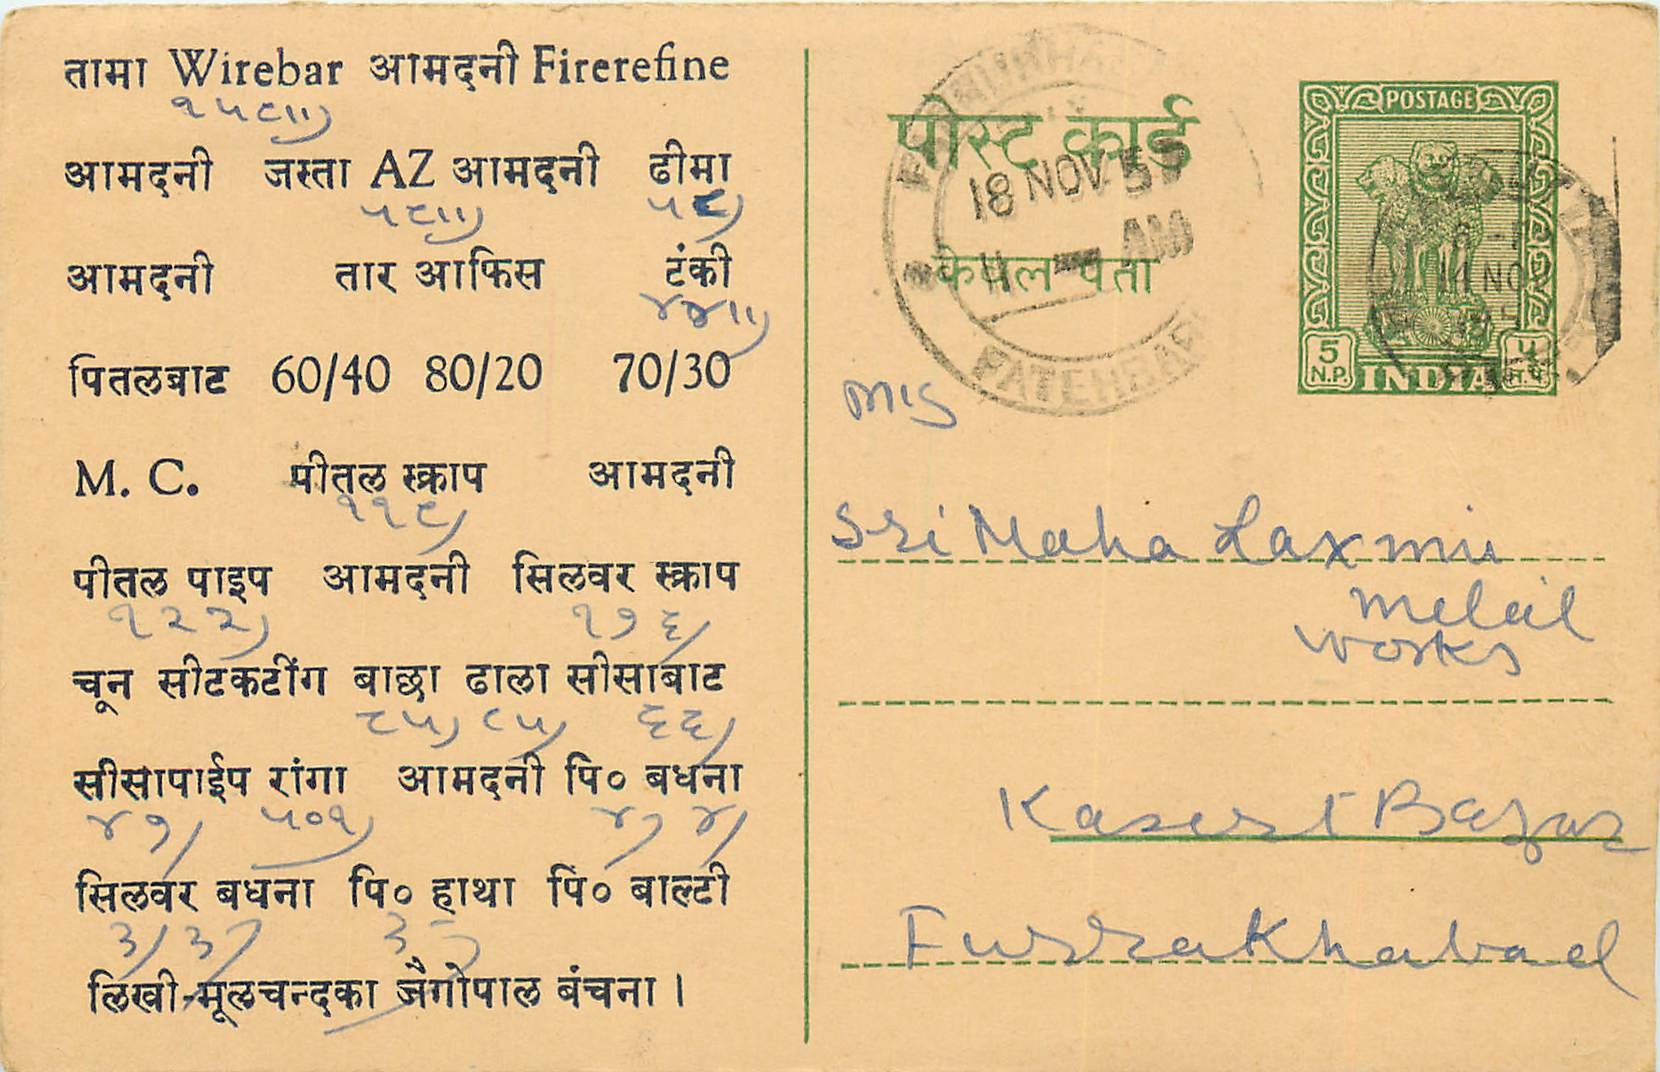 तामा Wirebar आमदनी Firerefine
आमदनी जस्ता AZ आमदनी ढीमा
आमदनी तार आफिस टंकी
पितलबाट 60/40 80/20 70/30
M. C. पीतल स्क्राप आमदनी
११९)
पीतल पाइप आमदनी सिलवर स्क्राप
१२२) १७६)
चून सीटकटींग बाछा ढाला सीसाबाट
६६)
सीसापाईप रांगा आमदनी पि० बधना
४७) ५०१)
सिलवर बधना पि० हाथा पि० बाल्टी
लिखी-मूलचन्दका जैगोपाल बंचना।
पोस्ट कार्ड
केवल पता
18 NOV 5
AM
FATEHGAR
POSTAGE
5 N.P.
INDIA
५ न.पै.
M/S
Sri Maha Laxmi
Metal
Works
Kasert Bazar
Furrakhabad